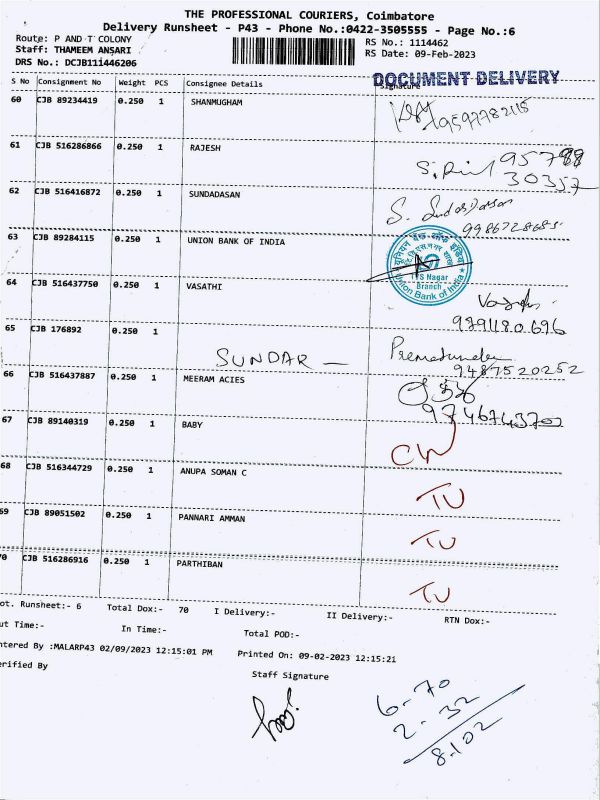 THE PROFESSIONAL COURIERS, Coimbatore
Delivery Runsheet - P43 - Phone No.:0422-3505555 - Page No.:6
Route: P AND T COLONY
RS No.: 1114462
Staff: THAMEEM ANSARI
RS Date: 09-Feb-2023
DRS No.: DCJB111446206
DOCUMENT DELIVERY
S No Consignment No Weight PCS Consignee Details Signature
60 CJB 89234419 0.250 1 SHANMUGHAM
9597782115
61 CJB 516286866 0.250 1 RAJESH
95788
30357
62 CJB 516416872 0.250 1 SUNDADASAN
S. Sundadasan
9986728685
63 CJB 89284115 0.250 1 UNION BANK OF INDIA
TVS Nagar
Branch
Union Bank of India
64 CJB 516437750 0.250 1 VASATHI
9791180696
65 CJB 176892 0.250 1
SUNDAR —
9487520252
66 CJB 516437887 0.250 1 MEERAM ACIES
9746743702
67 CJB 89140319 0.250 1 BABY
68 CJB 516344729 0.250 1 ANUPA SOMAN C
TU
69 CJB 89051502 0.250 1 PANNARI AMMAN
TU
70 CJB 516286916 0.250 1 PARTHIBAN
TU
ot. Runsheet:- 6 Total Dox:- 70 I Delivery:- II Delivery:- RTN Dox:-
ut Time:- In Time:- Total POD:-
ntered By :MALARP43 02/09/2023 12:15:01 PM Printed On: 09-02-2023 12:15:21
erified By
Staff Signature
6-70
2-32
8.102